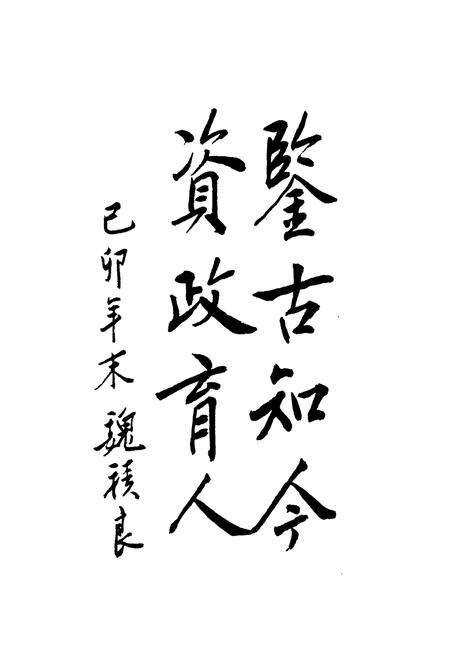 鑒古知今
資政育人
己卯年末 魏積良